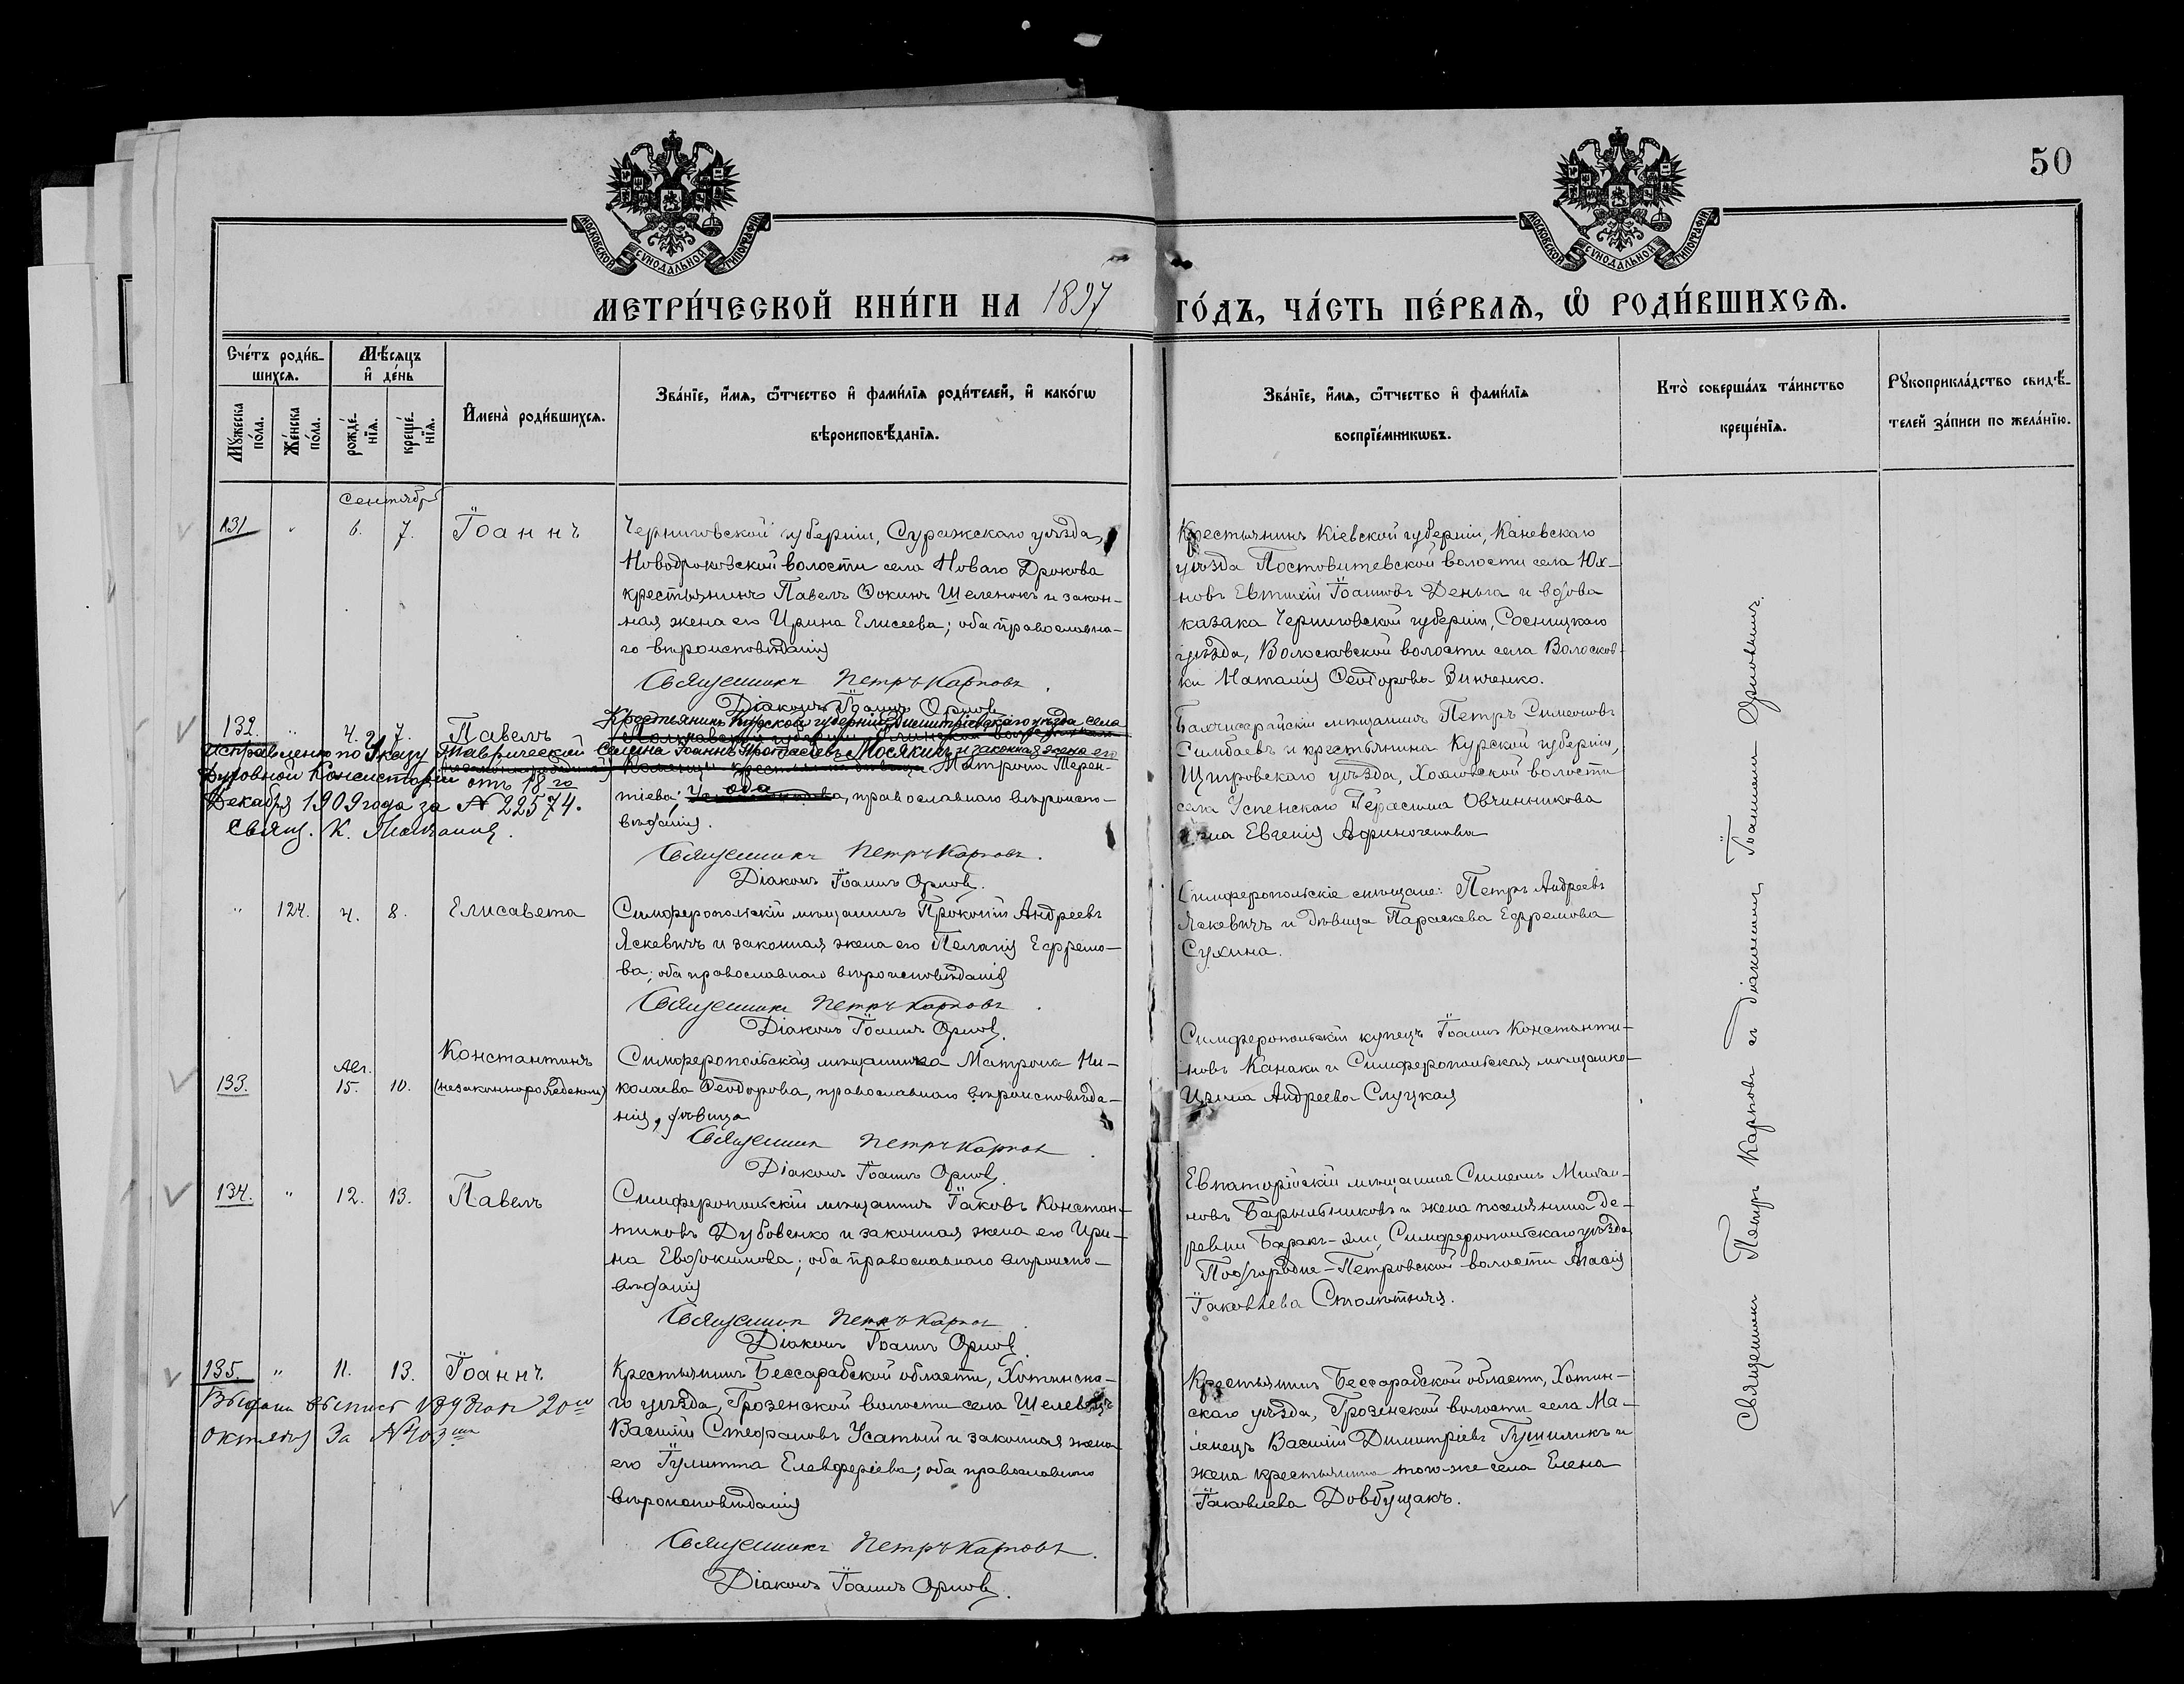 50
МОСКОВСКОЙ СѴНОДАЛЬНОЙ ТИПОГРАФІИ
МОСКОВСКОЙ СѴНОДАЛЬНОЙ ТИПОГРАФІИ
МЕТРИ́ЧЕСКОЙ КНИ́ГИ НА 1897 ГО́ДЪ, ЧА́СТЬ ПЕ́РВАѦ, Ѿ РОДИ́ВШИХСѦ.
Сче́тъ роди́в-
шихсѧ.
Мѣ́сѧцъ
и҆ де́нь
Мꙋ́жеска
по́ла.
Же́нска
по́ла.
рожде́-
нїѧ.
креще́-
нїѧ.
И҆мена̀ роди́вшихсѧ.
Зва́нїе, и҆́мѧ, ѻ҆́тчество и҆ фами́лїѧ роди́телей, и҆ како́гѡ
вѣроисповѣ́данїѧ.
Зва́нїе, и҆́мѧ, ѻ҆́тчество и҆ фами́лїѧ
воспрїе́мникѡвъ.
Кто̀ соверша́лъ та́инство
креще́нїѧ.
Рꙋкоприкла́дство свидѣ́-
телей за́писи по жела́нїю.
Сентябрь
131 " 6. 7. Іоаннъ
Черниговской губерніи, Суражскаго уѣзда,
Новодроковской волости села Новаго Дрокова
крестьянинъ Павелъ Фокинъ Шеленокъ и закон-
ная жена его Ирина Елисеева; оба православна-
го вѣроисповѣданія
Священникъ Петръ Карповъ.
Діаконъ Іоаннъ Орловъ
Крестьянинъ Кіевской губерніи, Каневскаго
уѣзда Постовитевской волости села Юх-
новъ Евтихій Іоанновъ Деньга и вдова
казака Черниговской губерніи, Сосницкаго
уѣзда, Волосковской волости села Волосков-
ки Наталія Ѳеодорова Зинченко.
132. " 4. 7. Павелъ
Исправлено по Указу Таврической
Духовной Консисторіи отъ 18го
Декабря 1909 года за № 22574.
Свящ. К.
Крестьянинъ Курской губерніи Дмитріевскаго уѣзда села
Іоаннъ Протасіевъ Мосякинъ и законная жена его
Матрона Терен-
тіева; оба, православнаго вѣроиспо-
вѣданія.
Священникъ Петръ Карповъ.
Діаконъ Іоаннъ Орловъ.
Бахчисарайскій мѣщанинъ Петръ Симеоновъ
Симбаевъ и крестьянина Курской губерніи,
Щигровскаго уѣзда, Хохловской волости
села Успенскаго Герасима Овчинникова
жена Евгенія Афиногенова
" 124. 4. 8. Елисавета
Симферопольскій мѣщанинъ Прокопій Андреевъ
Яскевичъ и законная жена его Пелагія Ефремо-
ва; оба православнаго вѣроисповѣданія
Священникъ Петръ Карповъ.
Діаконъ Іоаннъ Орловъ.
Симферопольскіе мѣщане: Петръ Андреевъ
Яскевичъ и дѣвица Параскева Ефремова
Сухина.
133. Авг. 15. 10. Константинъ
(незаконнорожденный)
Симферопольская мѣщанка Матрона Ни-
колаева Ѳеодорова, православнаго вѣроисповѣда-
нія, дѣвица
Священникъ Петръ Карповъ.
Діаконъ Іоаннъ Орловъ.
Симферопольскій купецъ Іоаннъ Константи-
новъ Канаки и Симферопольская мѣщанка
Ирина Андреева Слуцкая
134. " 12. 13. Павелъ
Симферопольскій мѣщанинъ Іаковъ Констан-
тиновъ Дубовенко и законная жена его Ири-
на Евдокимова; оба православнаго вѣроиспо-
вѣданія
Священникъ Петръ Карповъ.
Діаконъ Іоаннъ Орловъ.
Евпаторійскій мѣщанинъ Симеонъ Михаи-
ловъ Барыльниковъ и жена поселянина де-
ревни Баракъ-эли, Симферопольскаго уѣзда
Подгородне-Петровской волости
Іаковлева
135. " 11. 13. Іоаннъ
Выдана выпись 1897 года 20го
октября за №403
Крестьянинъ Бессарабской области, Хотинска-
го уѣзда, Грозенской волости села
Василій Стефановъ Усатый и законная жена
его Іулитта Елевферіева; оба православнаго
вѣроисповѣданія
Священникъ Петръ Карповъ.
Діаконъ Іоаннъ Орловъ.
Крестьянинъ Бессарабской области, Хотин-
скаго уѣзда, Грозенской волости села Ма-
линецъ Василій Димитріевъ Гушиликъ и
жена крестьянина того-же села Елена
Іаковлева Довбущакъ.
Священникъ Петръ Карповъ съ діакономъ Іоанномъ Орловымъ.